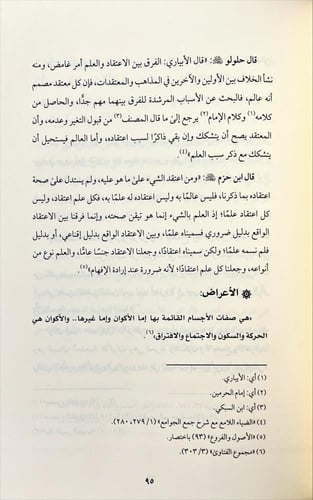 قال حلولو ﷺ: «قال الأبياري: الفرق بين الاعتقاد والعلم أمر غامض، ومنه
نشأ الخلاف بين الأولين والآخرين في المذاهب والمعتقدات، فإن كل معتقد مصمم
أنه عالم، فالبحث عن الأسباب المرشدة للفرق بينهما مهم جدًّا، والحاصل من
كلامه(١) وكلام الإمام(٢) يرجع إلى ما قال المصنف(٣) من قبول التغير وعدمه، وأن
المعتقد يصح أن يتشكك وإن بقي ذاكرًا لسبب اعتقاده، وأما العالم فيستحيل أن
يتشكك مع ذكر سبب العلم»(٤)
قال ابن حزم: «ومن اعتقد الشيء على ما هو عليه، ولم يستدل على صحة
اعتقاده بما ذكرنا، فليس عالمًا به وليس اعتقاده له علمًا به، فكل علم اعتقاد، وليس
كل اعتقاد علمًا؛ إذ العلم بالشيء إنما هو تيقن صحته، وإنما فرقنا بين الاعتقاد
الواقع بدليل ضروري فسميناه علمًا، وبين الاعتقاد الواقع بدليل إقناعي، أو بدليل
فلم نسمه علمًا؛ ولكن سميناه اعتقادًا، وجعلنا الاعتقاد جنسًا عامًّا، والعلم نوع من
أنواعه، وجعلنا كل علم اعتقادًا؛ لأنه ضرورة عند إرادة الإفهام»(٥).
الأعراض:
«هي صفات الأجسام القائمة بها إما الأكوان وإما غيرها.. والأكوان هي
الحركة والسكون والاجتماع والافتراق»(٦).
(١) أي: الأبياري.
(٢) أي: إمام الحرمين.
(٣) أي: ابن السبكي.
(٤) «الضياء اللامع مع شرح جمع الجوامع» (١/ ٢٧٩، ٢٨٠).
(٥) «الأصول والفروع» (٩٣) باختصار.
(٦) «مجموع الفتاوى» (٣/ ٣٠٣).
٩٥